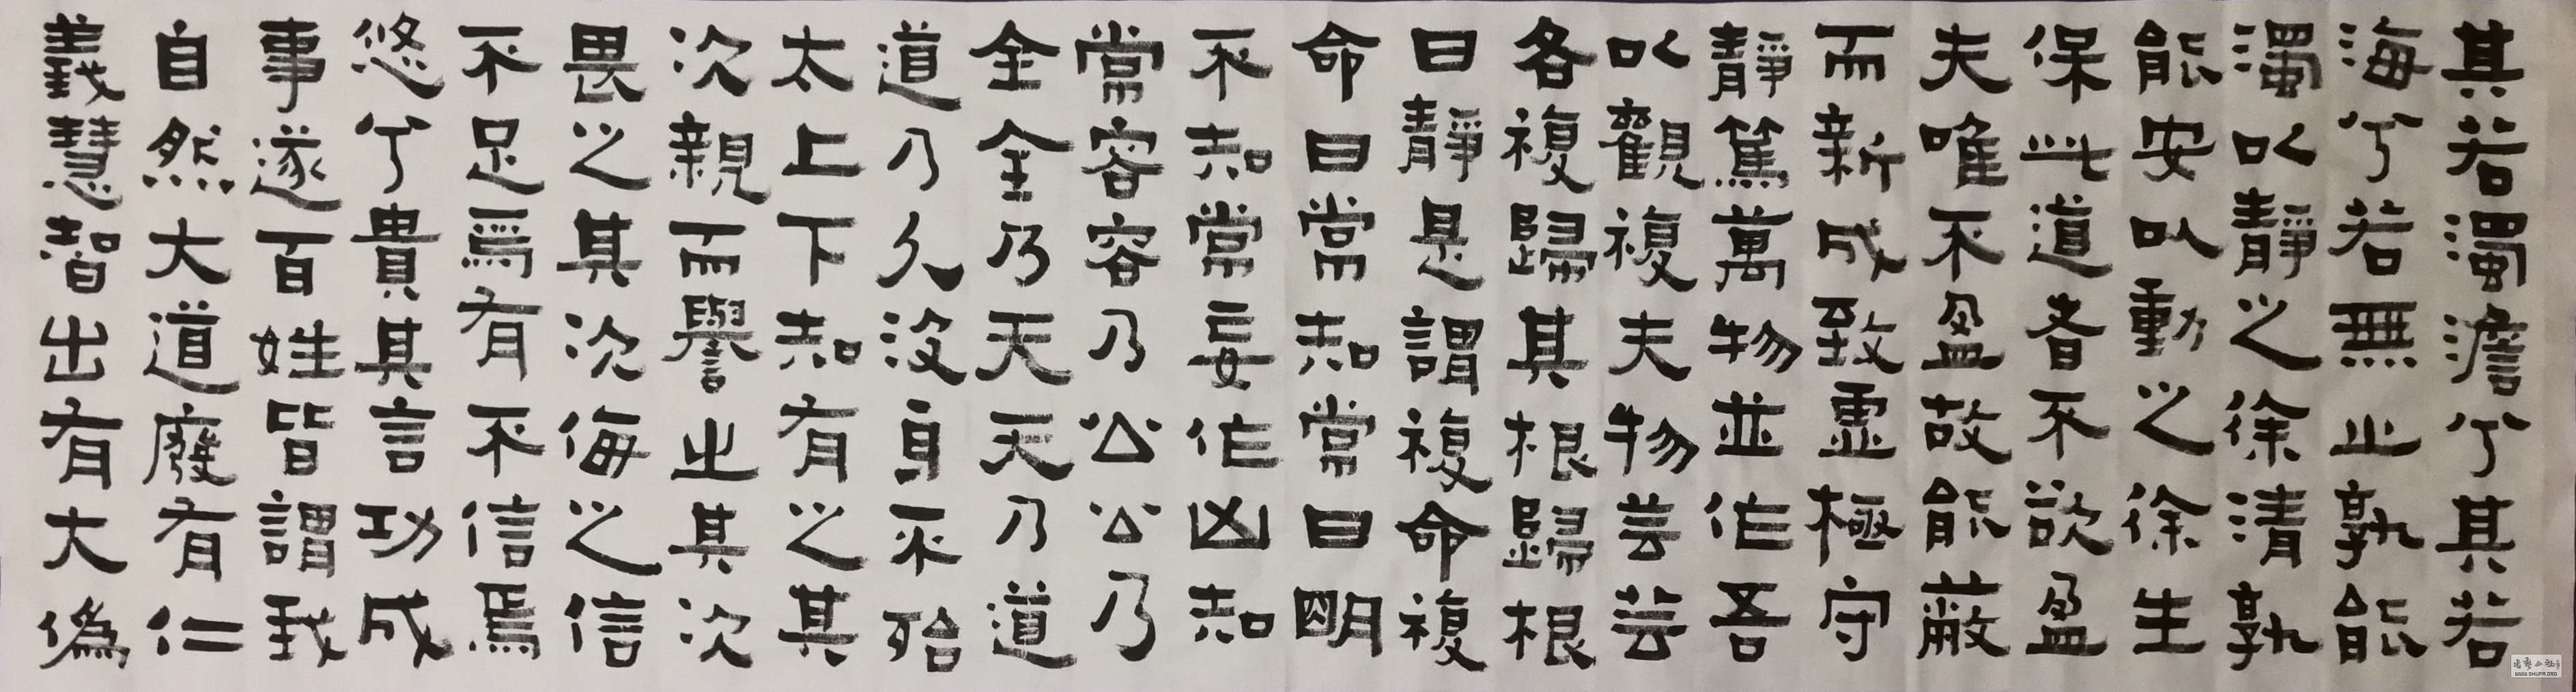 其若濁澹兮其若
海兮若無止孰能
濁以靜之徐清孰
能安以動之徐生
保此道者不欲盈
夫唯不盈故能蔽
而新成致虛極守
靜篤萬物並作吾
以觀複夫物芸芸
各複歸其根歸根
曰靜是謂複命複
命曰常知常曰明
不知常妄作凶知
常容容乃公公乃
全全乃天天乃道
道乃久沒身不殆
太上下知有之其
次親而譽之其次
畏之其次侮之信
不足焉有不信焉
悠兮貴其言功成
事遂百姓皆謂我
自然大道廢有仁
義慧智出有大偽
WWW.SHUFA.ORG